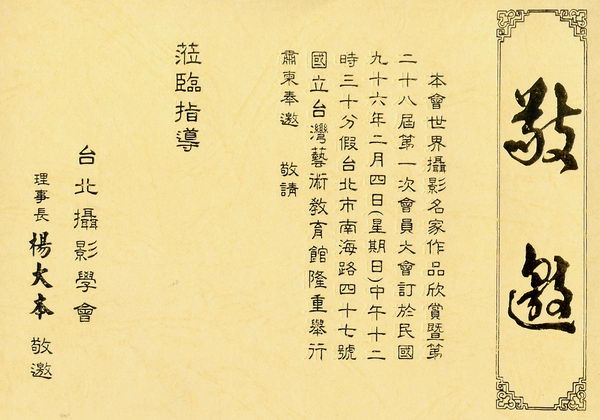 敬邀
本會世界攝影名家作品欣賞暨第
二十八屆第一次會員大會訂於民國
九十六年二月四日(星期日)中午十二
時三十分假台北市南海路四十七號
國立台灣藝術教育館隆重舉行
肅柬奉邀 敬請
蒞臨指導
台北攝影學會
理事長 楊大本 敬邀